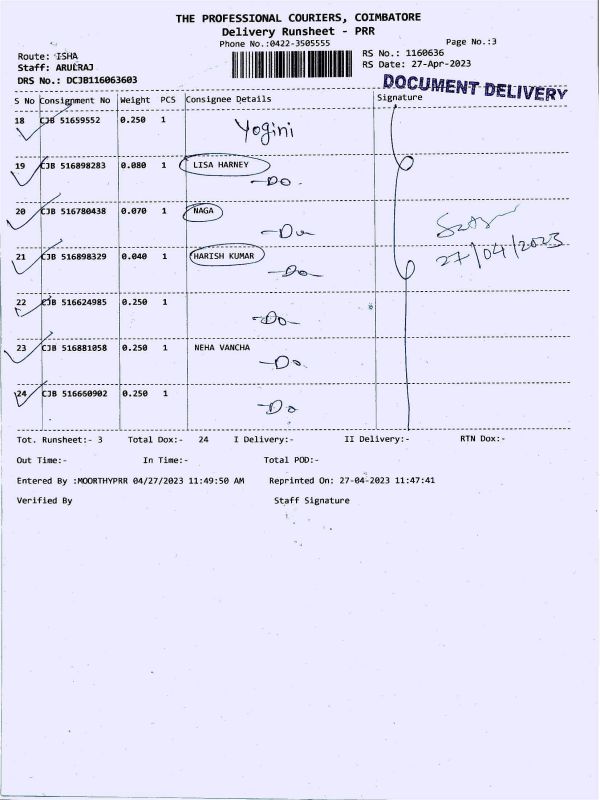 THE PROFESSIONAL COURIERS, COIMBATORE
Delivery Runsheet - PRR
Phone No.:0422-3505555 Page No.:3
Route: ISHA RS No.: 1160636
Staff: ARULRAJ RS Date: 27-Apr-2023
DRS No.: DCJB116063603
DOCUMENT DELIVERY
S No Consignment No Weight PCS Consignee Details Signature
18 CJB 51659552 0.250 1 Yogini
19 CJB 516898283 0.080 1 LISA HARNEY
-Do.
20 CJB 516780438 0.070 1 NAGA
-Do-
27/04/2023
21 CJB 516898329 0.040 1 HARISH KUMAR
-Do-
22 CJB 516624985 0.250 1
-Do-
23 CJB 516881058 0.250 1 NEHA VANCHA
-Do.
24 CJB 516660902 0.250 1
-Do
Tot. Runsheet:- 3 Total Dox:- 24 I Delivery:- II Delivery:- RTN Dox:-
Out Time:- In Time:- Total POD:-
Entered By :MOORTHYPRR 04/27/2023 11:49:50 AM Reprinted On: 27-04-2023 11:47:41
Verified By Staff Signature